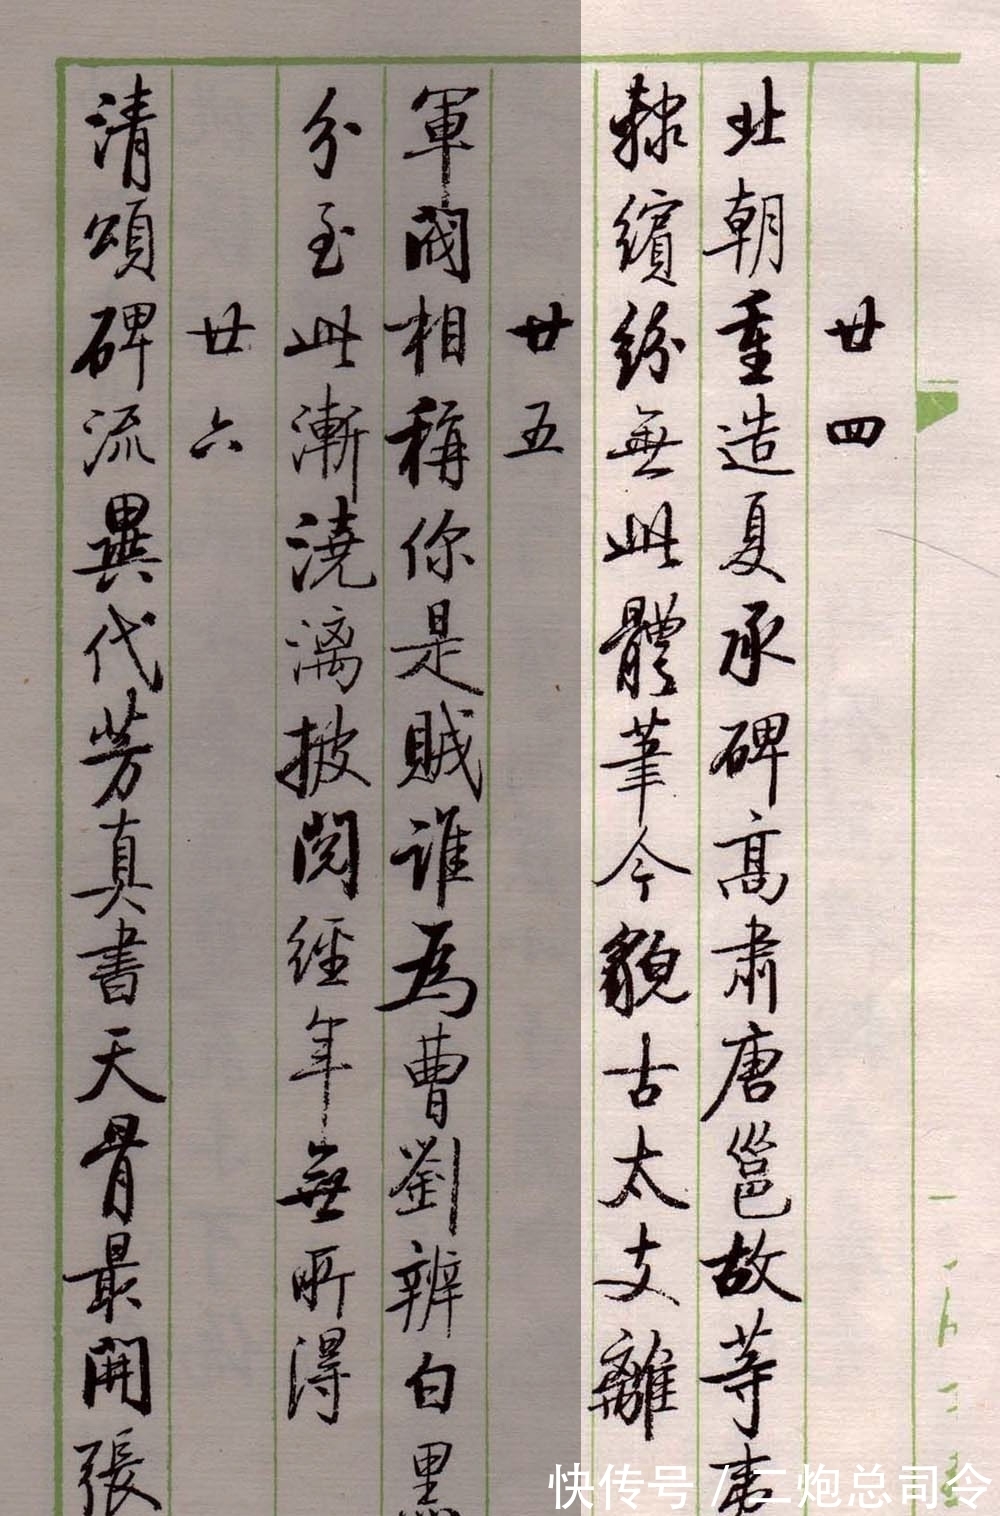 廿四
北朝重造夏承碑高肅唐邕故等夷
隸繽紛無此體筆今貌古太支離
廿五
軍閥相稱你是賊誰為曹劉辨白黑
分至此漸澆漓披閱經年無所得
廿六
清頌碑流異代芳真書天骨最開張
快传号/二炮总司令